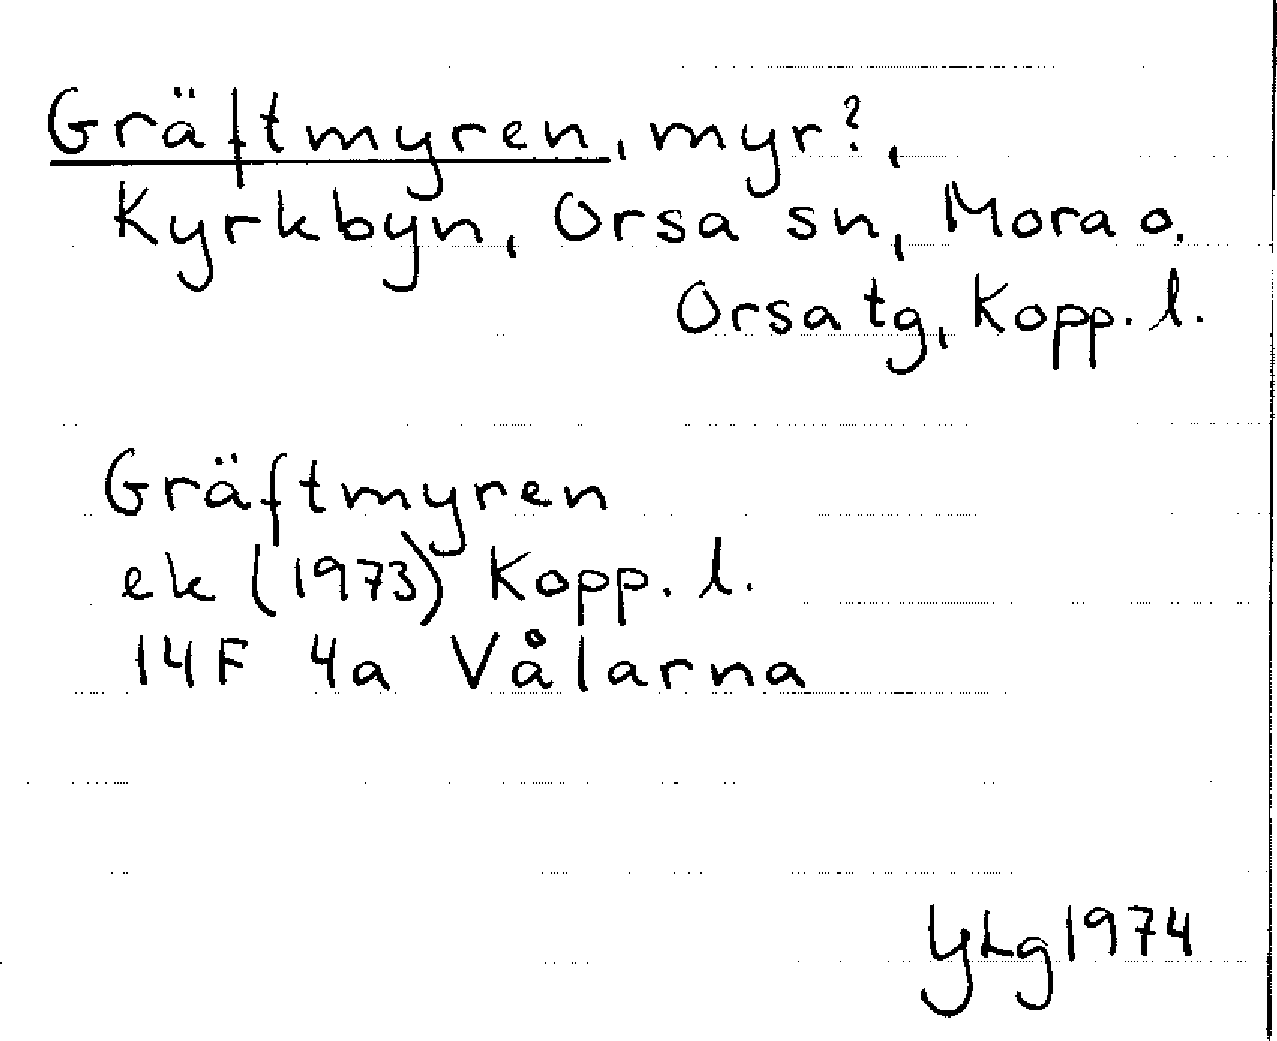 Gräftmyren, myr?,
Kyrkbyn, Orsa sn, Mora o.
Orsa tg, Kopp. l.
Gräftmyren
ek (1973) Kopp. l.
14F 4a Vålarna
YLg 1974